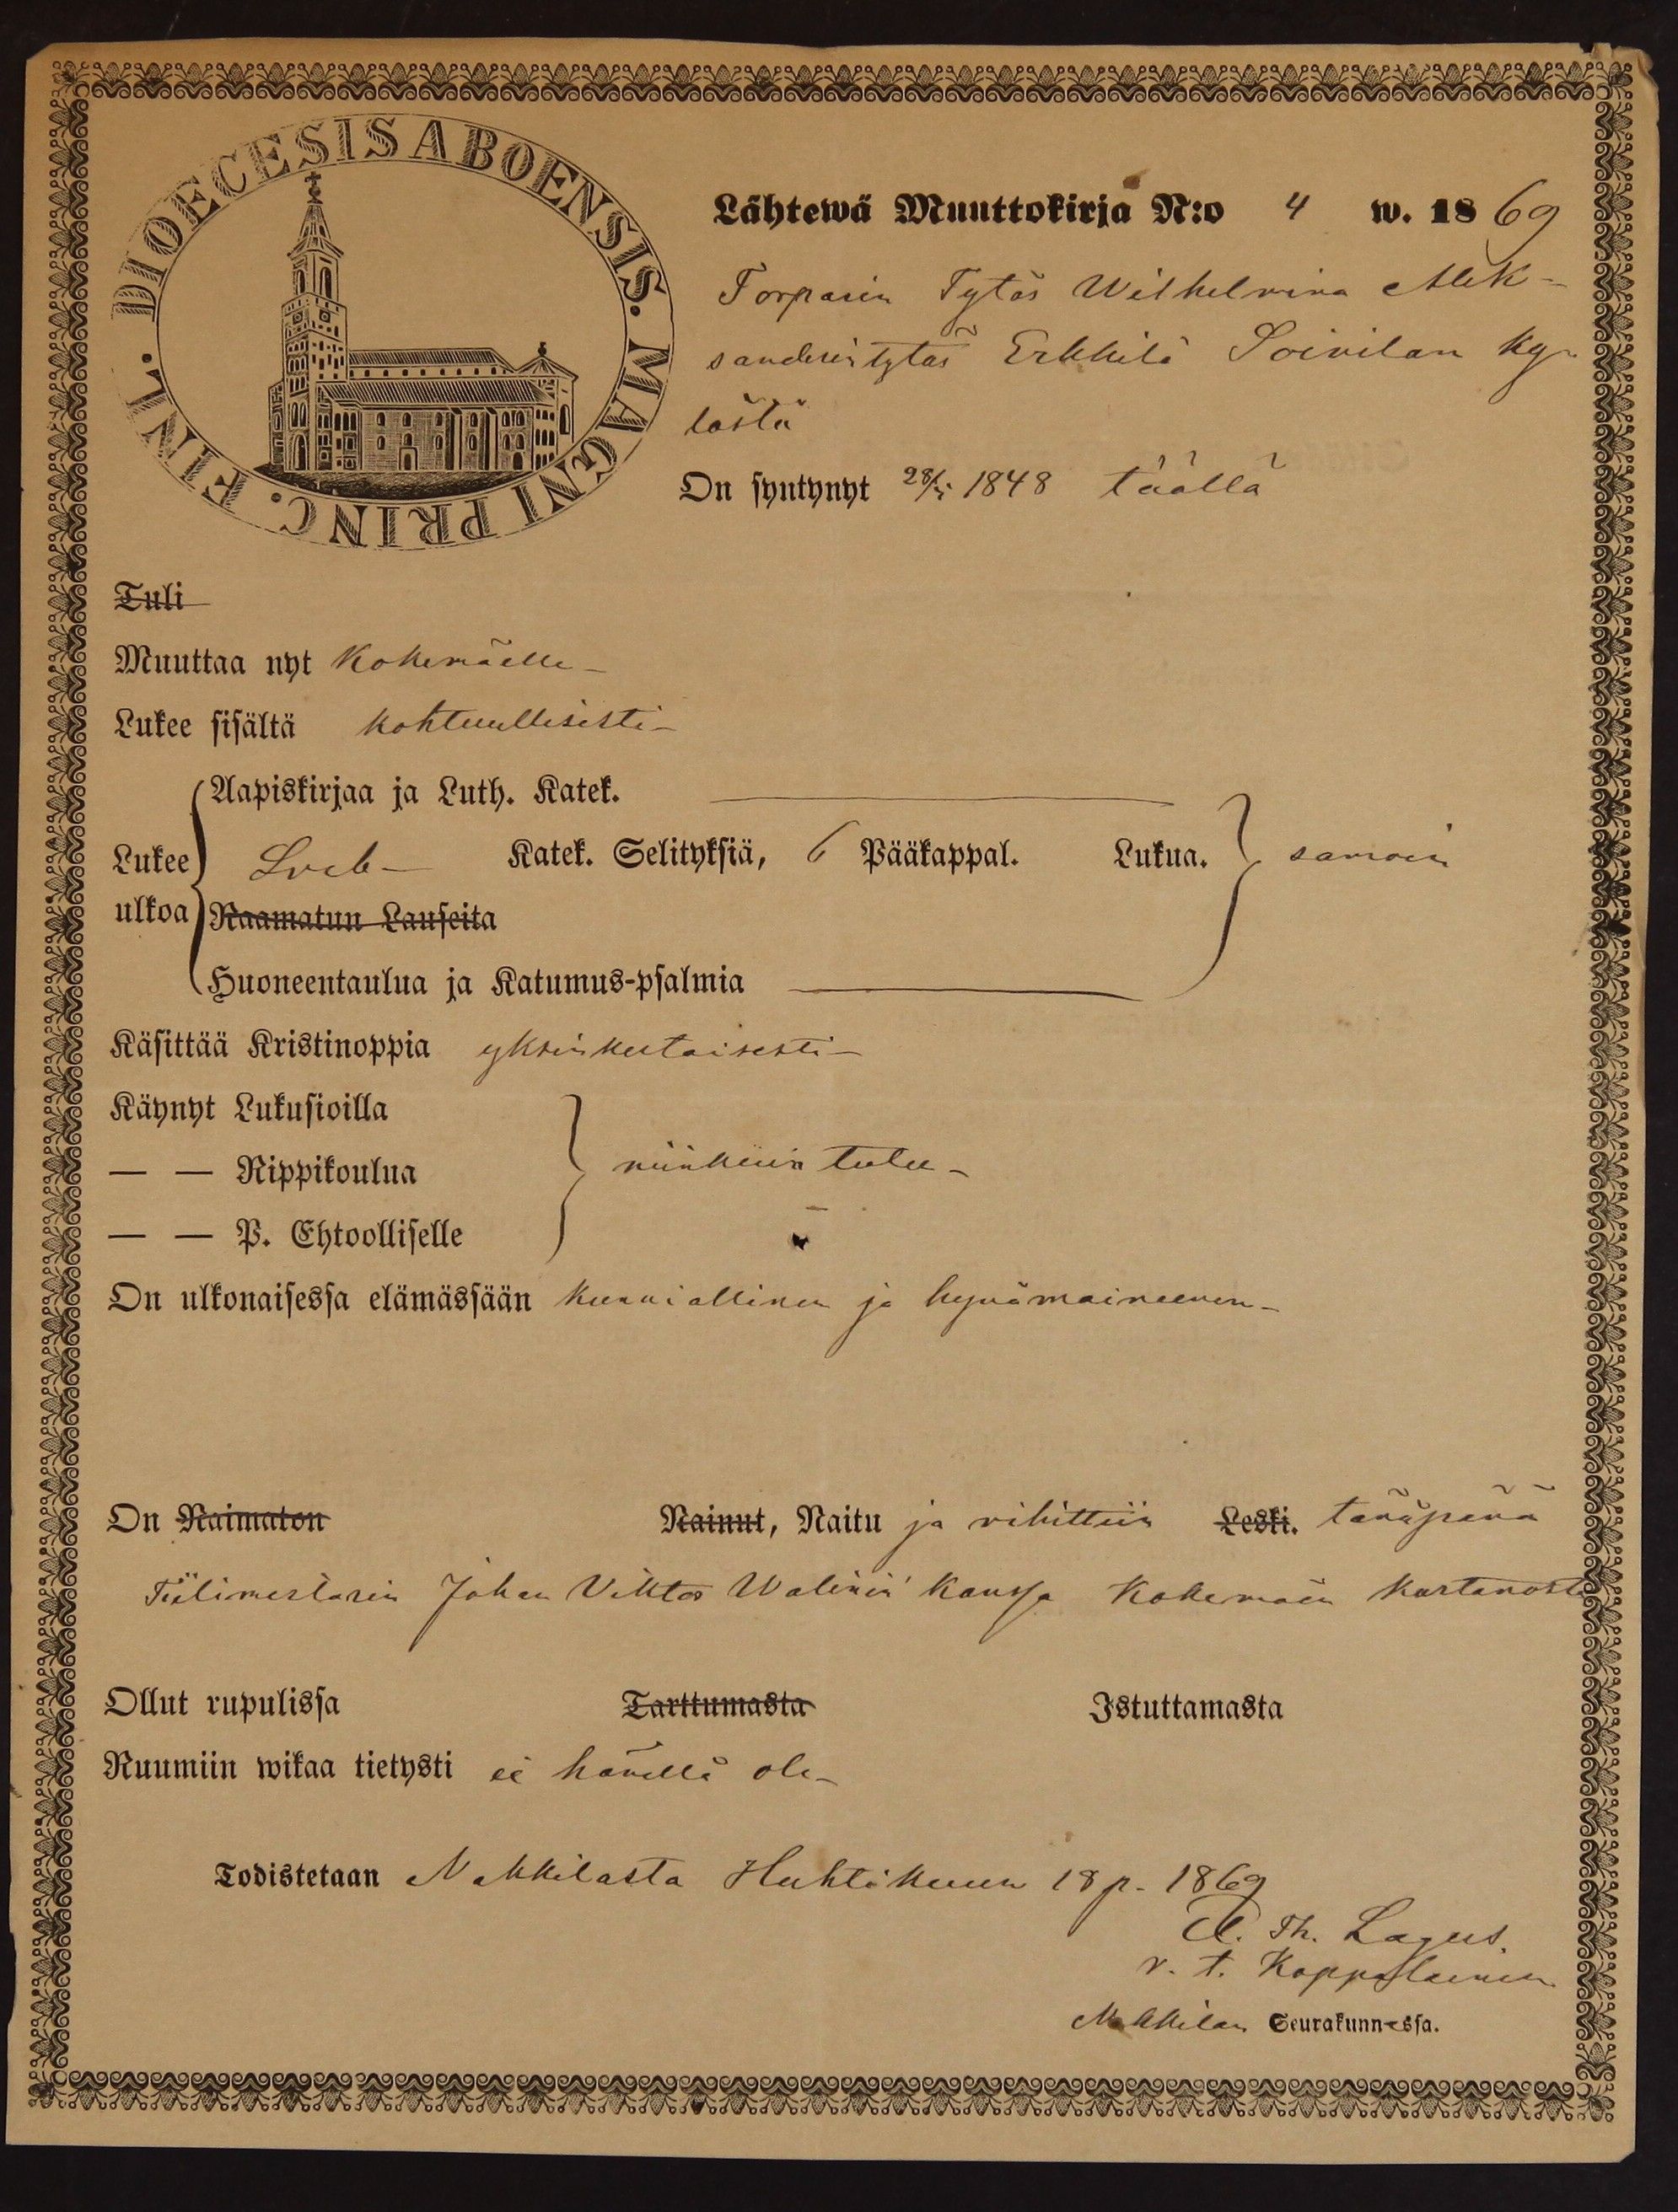 DIOECESIS ABOENSIS. MAGNI PRINC. FINL.
Lähtewä Muuttokirja N:o 4 w. 1869
Torparin Tytär Wilhelmina Alek-
santerintytär Erkkilä Soinilan ky-
lästä
On syntynyt 28/5 1848 täällä
Tuli
Muuttaa nyt Kokemäelle –
Lukee sisältä kohtuullisesti –
Aapiskirjaa ja Luth. Katek.
Lukee Sveb – Katek. Selityksiä, 6 Pääkappal. Lukua. samoin
ulkoa Raamatun Lauseita
Huoneentaulua ja Katumus-psalmia
Käsittää Kristinoppia yksinkertaisesti –
Käynyt Lukusioilla
— — Rippikoulua niinkuin tulee –
— — P. Ehtoolliselle
On ulkonaisessa elämässään kunniallinen ja hyvämaineenen –
On Naimaton Nainut, Naitu ja vihittiin Leski. tänäpänä
Tiilimestarin Johan Viktor Walinin kanssa Kokemäen kartanosta
Ollut rupulissa Tarttumasta Istuttamasta
Ruumiin wikaa tietysti ei hänellä ole –
Todistetaan Nakkilasta Huhtikuun 18 p. 1869
Th. Lagus.
v. t. Kappalainen
Nakkilan Seurakunnassa.